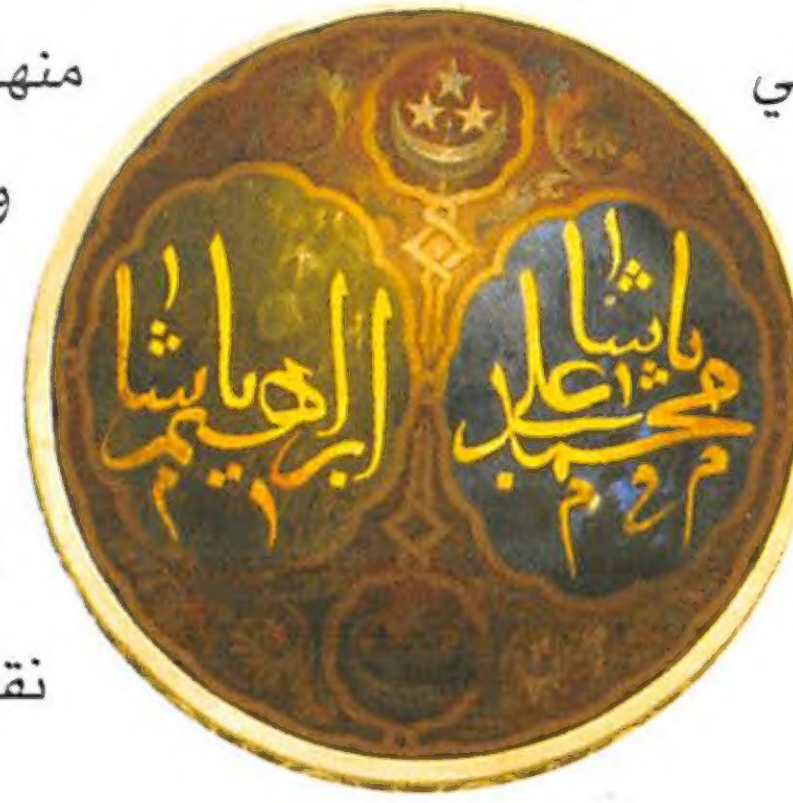 منها
محمد علي باشا
ابراهيم باشا